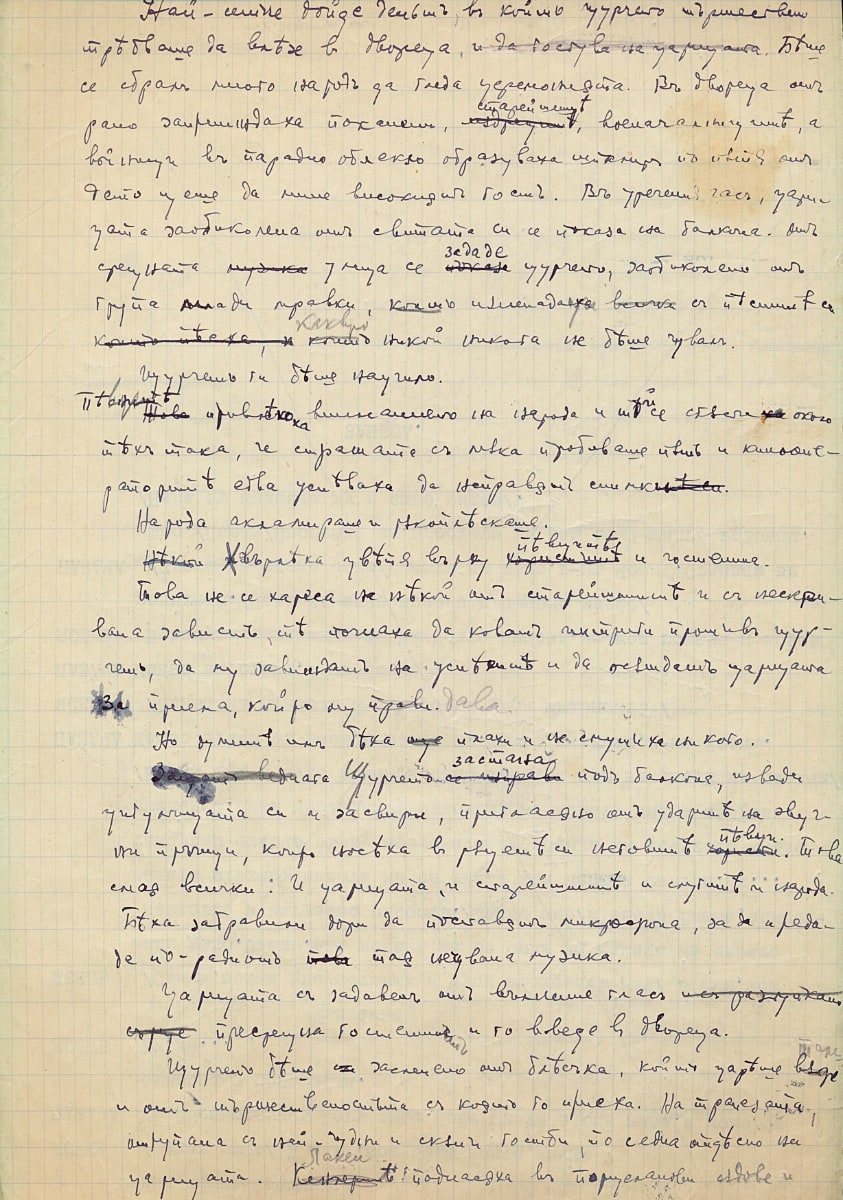 Най-сетне дойде деньтъ, въ който щурчето тържествено
трѣбваше да влѣзе в двореца, и да гостува на царицата. Бѣше
се събралъ много народъ да гледа церемонията. Въ двореца отъ
рано запристигаха поканени, старейшинитѣ, военачалницитѣ, а
войници въ парадно облекло образуваха шпалиръ по пѫтя отъ
дето щеше да мине високиятъ гость. Въ уречения часъ, цари-
цата заобиколена отъ свитата си се показа на балкона. Отъ
срещната музика улица се зададе показа щурчето, заобиколено отъ
група млади мравки, които изненадаха всички съ пѣснитѣ си
които пѣеха, и каквито които никой никога не бѣше чувалъ.
Щурчето ги бѣше научило.
Пѣвцитѣ Това привлѣкоха вниманието на народа и той се стече около
тѣхъ така, че стражата съ мѫка пробиваше пѫть и кинооpе-
раторитѣ едва успѣваха да направятъ снимкитѣ си.
Народа акламираше и рѫкоплѣскаше.
Нѣкой Хвърлѣха цвѣтя върху пѣвчитѣ хориститѣ и гостенина.
Това не се хареса на нѣкой отъ старейшинитѣ и съ нескри-
вана зависть, тѣ почнаха да коватъ интриги противъ щур-
чето, да му завиждатъ на успѣхитѣ и да осѫждатъ царицата
за приема, който му прави. дава.
Но думитѣ имъ бѣха още плахи и не смутиха никого.
Щурчето застана се изправи подъ балкона, извади
цигулчицата си и засвири, пригласяно отъ ударитѣ на звуч-
ни пръчици, които носѣха в рѫцетѣ си неговитѣ пѣвци. хористи. Това
смая всички: И царицата, и старейшинитѣ и слугитѣ и народа.
Бѣха забравили дори да поставятъ микрофона, за да преда-
де по-радиото това тая нечувана музика.
Царицата съ задавенъ отъ вълнение гласъ и съ разтуптано
сърце пресрещна гостенинътъ и го въведе в двореца.
Щурчето бѣше заслепено отъ блѣсъка, който царѣше вредъ
и отъ тържествеността съ която го приеха. На трапезата,
отрупана съ най-чудни и скѫпи гостби, то седна отдѣсно на
царицата. Лакеи поднасяха въ порцеланови сѫдове и